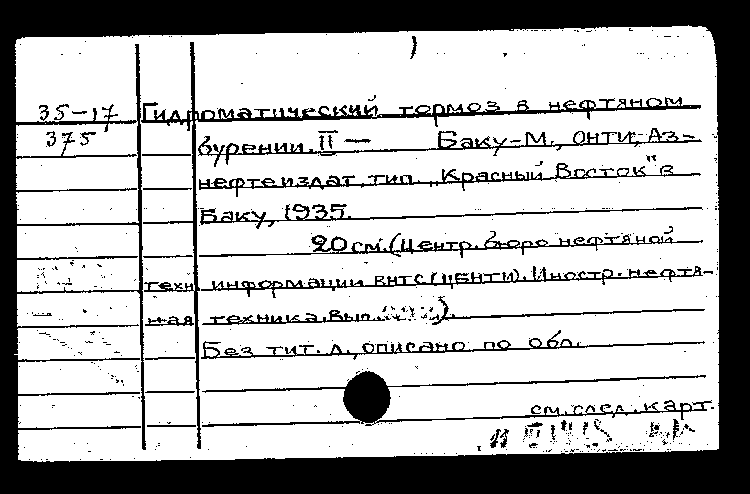 35-17
375
Гидроматический тормоз в нефтяном
бурении. II — Баку-М., ОНТИ, Аз-
нефтеиздат, тип. „Красный Восток" в
Баку, 1935.
20 см. (Центр. бюро нефтяной
техн. информации ВНТС (ЦБНТИ). Иностр. нефтя-
ная техника. Вып. ).
Без тит. л., описано по обл.
см. след. карт.